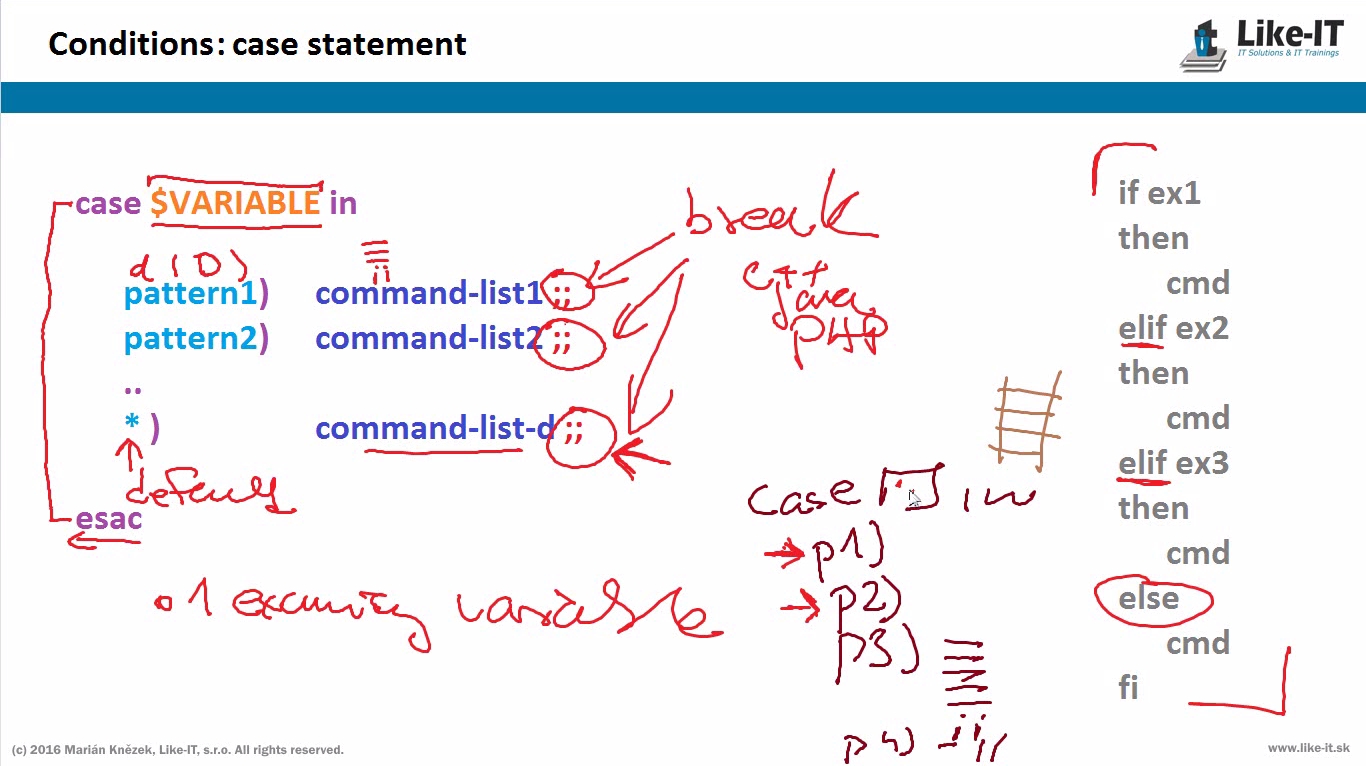 Conditions: case statement
Like-IT
IT Solutions & IT Trainings
case $VARIABLE in
d | D )
pattern1) command-list1 ;;
pattern2) command-list2 ;;
..
* ) command-list-d ;;
esac
break
C++
Java
PHP
variable
case in
p1)
p2)
p3)
p4) ;;
if ex1
then
cmd
elif ex2
then
cmd
elif ex3
then
cmd
else
cmd
fi
(c) 2016 Marián Knězek, Like-IT, s.r.o. All rights reserved.
www.like-it.sk